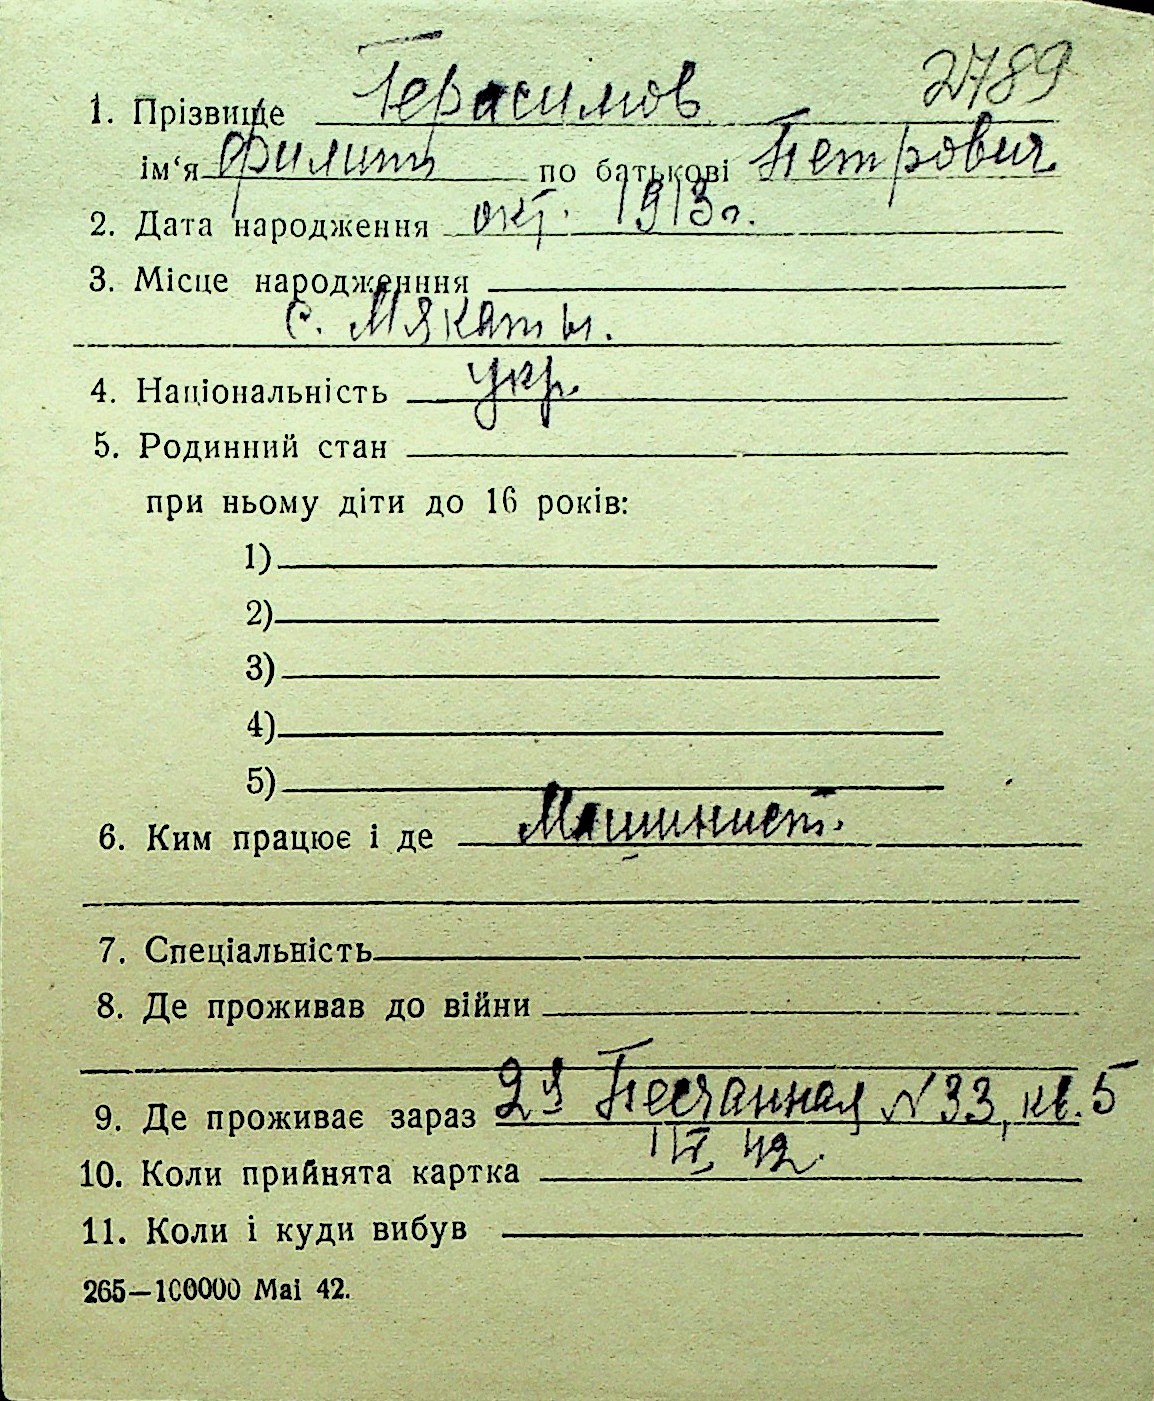 2789
1. Прізвище Герасимов
ім‘я Филипп по батькові Петрович
2. Дата народження окт. 1913 г.
3. Місце народженння
с. Мякоты.
4. Національність укр.
5. Родинний стан
при ньому діти до 16 років:
1)
2)
3)
4)
5)
6. Ким працює і де Машинист.
7. Спеціальність
8. Де проживав до війни
9. Де проживає зараз 2я Песчанная №33, кв. 5
10. Коли прийнята картка 42.
11. Коли і куди вибув
265—100000 Mai 42.